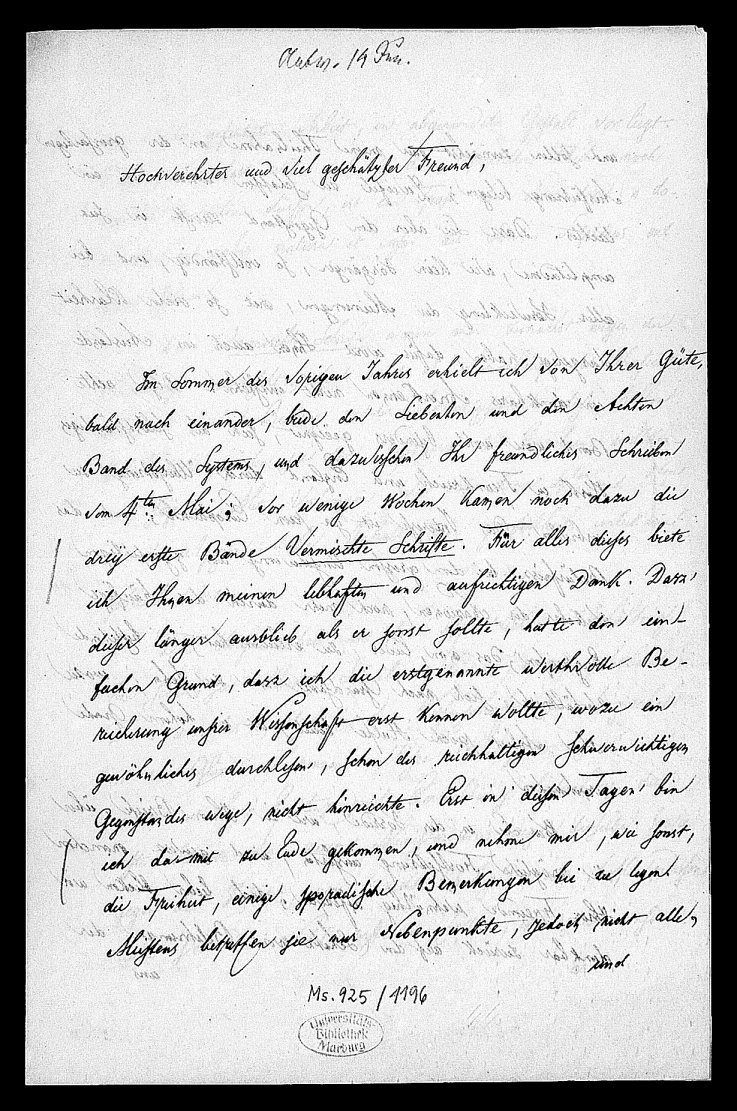 Antw. 19 Jun.
Hochverehrter und viel geschätzter Freund,
Im Sommer des vorigen Jahres erhielt ich von Ihrer Güte,
bald nach einander, beide den Siebenten und den Achten
Band des Systems, und dazwischen Ihr freundliches Schreiben
vom 4ten Mai; vor wenige Wochen kamen noch dazu die
dreij erste Bände Vermischte Schrifte. Für alles dieses biete
ich Ihnen meinen lebhaften und aufrichtigen Dank. Dasz
dieser länger ausblieb als er sonst sollte, hatte den ein-
fachen Grund, dasz ich die erstgenannte werthvolle Be-
reicherung unsrer Wissenschaft erst kennen wollte, wozu ein
gewöhnliches durchlesen, schon des reichhaltigen schwerwichtigen
Gegenstandes wege, nicht hinreichte. Erst in diesen Tagen bin
ich damit zu Ende gekommen, und nehme mir, wie sonst,
die Freiheit, einige sporadische Bemerkungen bei zu legen.
Meistens betreffen sie nur Nebenpunkte, jedoch nicht alle,
und
Ms. 925 / 1196
Universitäts-
Bibliothek
Marburg